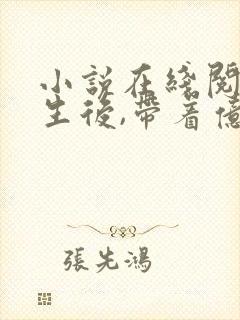 小說在綫閱
生後,帶着億
張先鴻